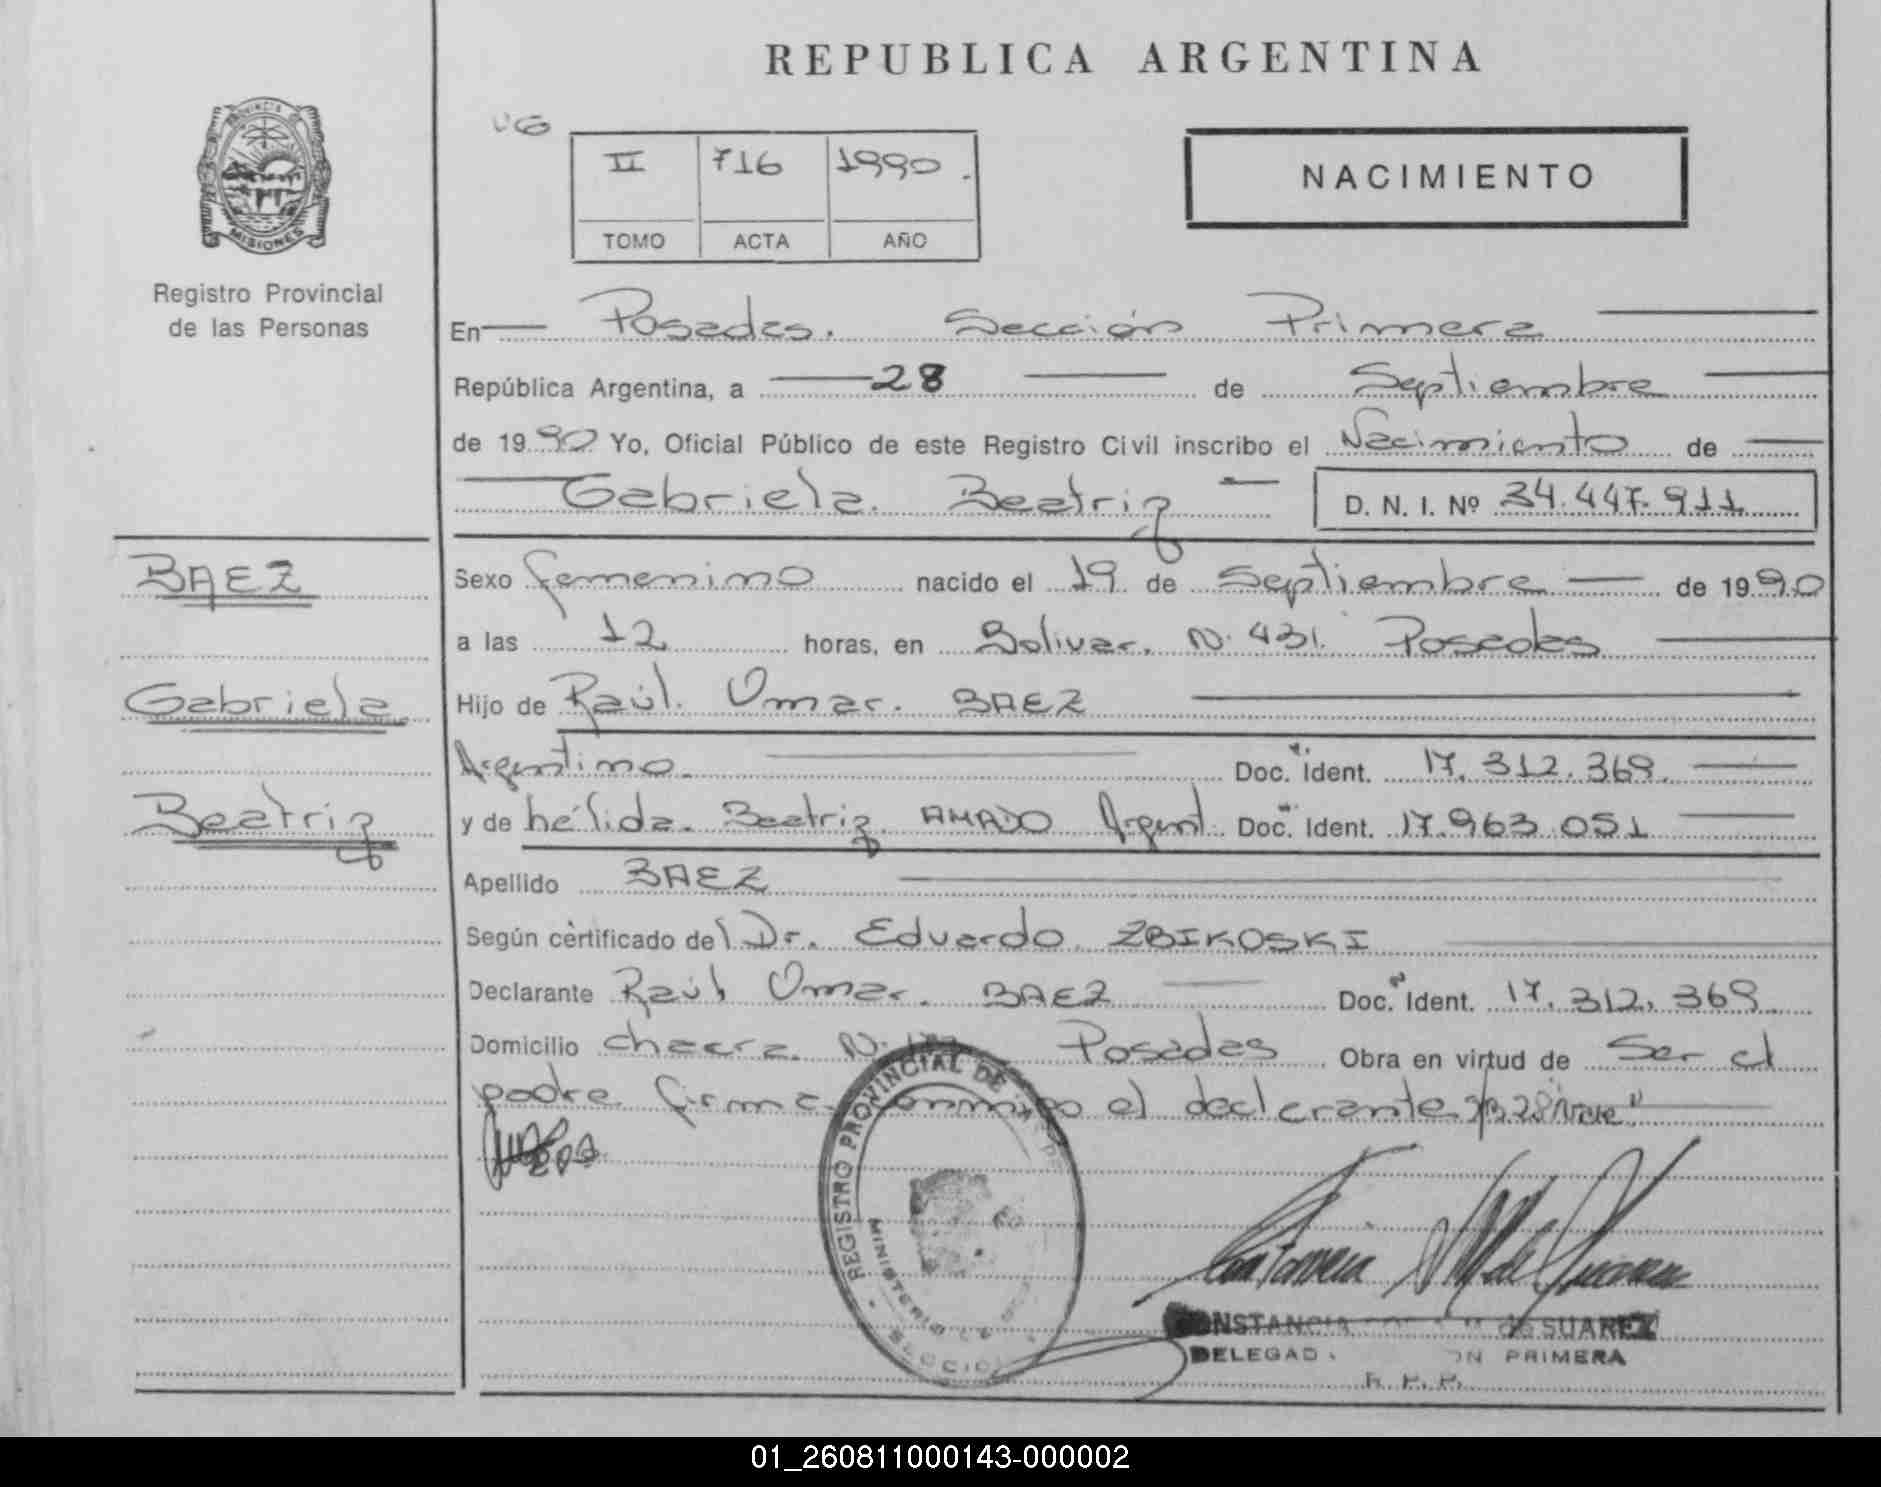 REPUBLICA ARGENTINA
PROVINCIA DE
MISIONES
Registro Provincial
de las Personas
II 716 1990.
TOMO ACTA AÑO
NACIMIENTO
En Posadas. Sección Primera
República Argentina, a 28 de Septiembre
de 1990 Yo, Oficial Público de este Registro Civil inscribo el Nacimiento de
Gabriela. Beatriz D. N. I. Nº 34.447.911
BAEZ
Gabriela
Beatriz
Sexo femenino nacido el 19 de Septiembre de 1990
a las 12 horas, en Bolivar. N. 431. Posadas
Hijo de Raúl. Omar. BAEZ
Argentino. Doc. Ident. 17.312.369.
y de hélida. Beatriz AMADO Argent. Doc. Ident. 17.963.051
Apellido BAEZ
Según certificado del Dr. Eduardo ZBIKOSKI
Declarante Raúl Omar. BAEZ Doc. Ident. 17.312.369.
Domicilio chacra. N. Posadas Obra en virtud de Ser el
padre. firma. conmigo el declarante
REGISTRO PROVINCIAL DE
MINISTERIO DE
CONSTANCIA de SUAREZ
PRIMERA
R. P. P.
01_260811000143-000002